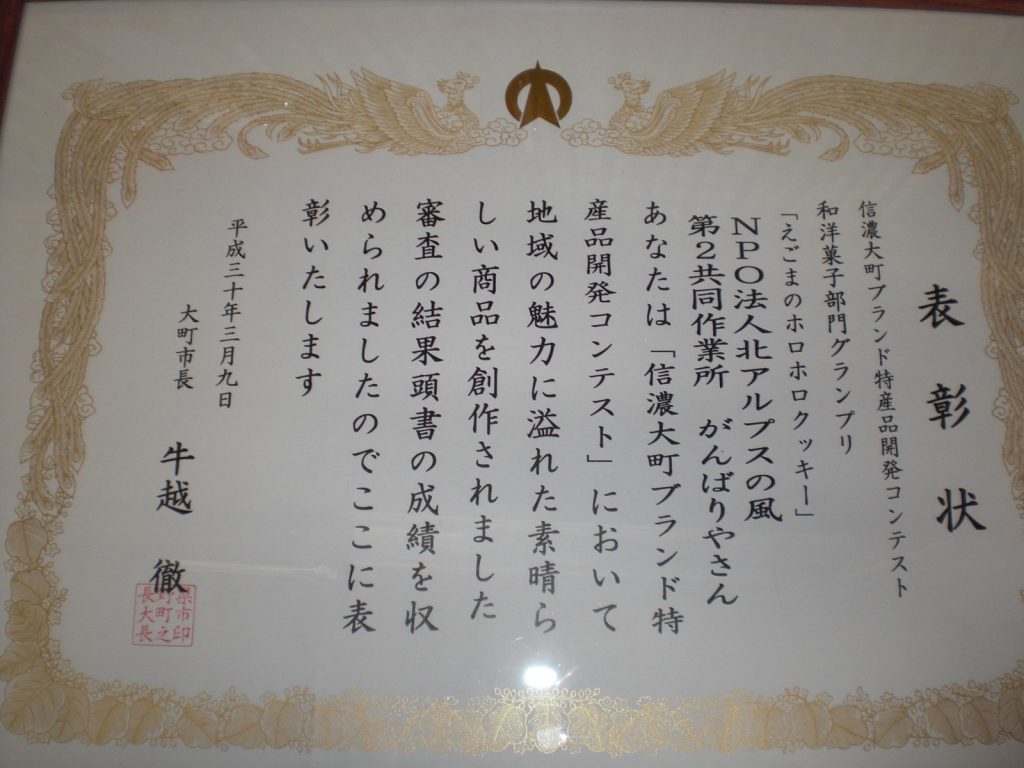 表彰状
信濃大町ブランド特産品開発コンテスト
和洋菓子部門グランプリ
「えごまのホロホロクッキー」
NPO法人北アルプスの風
第2共同作業所 がんばりやさん
あなたは「信濃大町ブランド特
産品開発コンテスト」において
地域の魅力に溢れた素晴ら
しい商品を創作されました
審査の結果頭書の成績を収
められましたのでここに表
彰いたします
平成三十年三月九日
大町市長 牛越 徹
県市印
町之
長大長